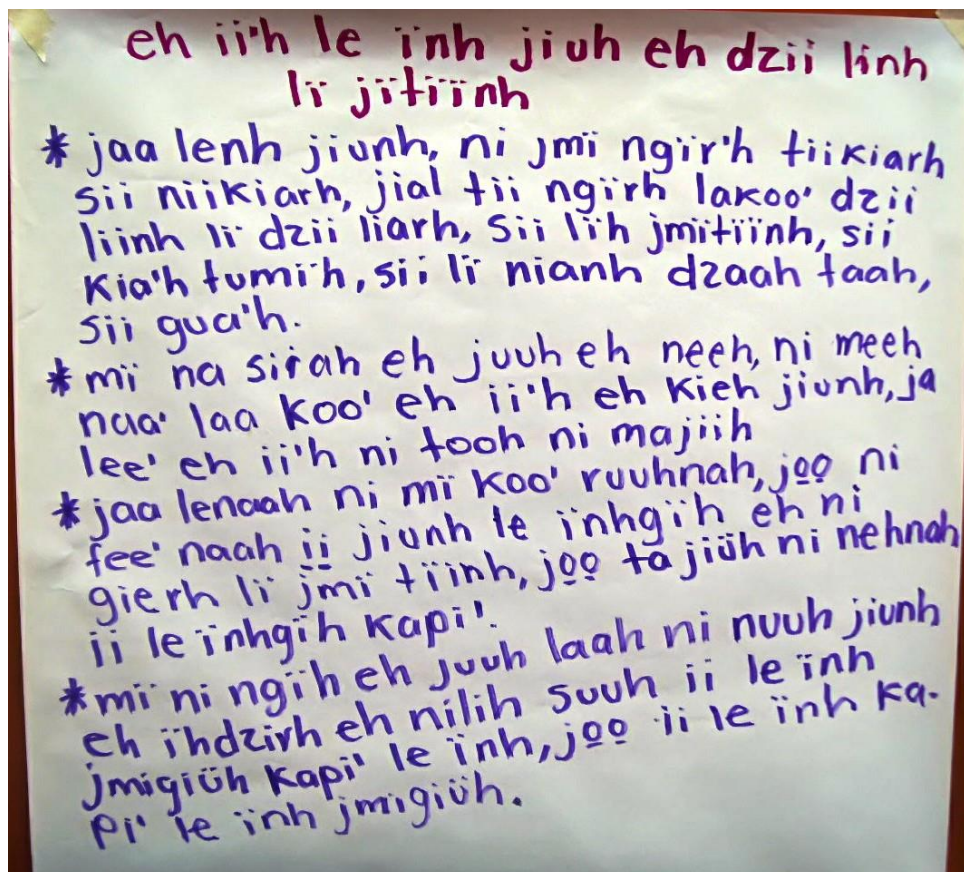 eh ii'h le ïnh jiuh eh dzii linh
lï jïtïïnh
* jaa lenh jiunh, ni jmï ngïr'h tiikiarh
sii niikiarh, jial tii ngïrh lakoo' dzii
liinh lï dzii liarh, sii lïh jmïtïïnh, sii
kia'h tumïh, sii lï nianh dzaah taah,
sii gua'h.
* mï na sirah eh juuh eh neeh, ni meeh
naa' laa koo' eh ii'h eh kieh jiunh, ja
lee' eh ii'h ni tooh ni majiih
* jaa lenaah ni mï koo' ruuhnah, jo̲o̲ ni
fee' naah i̲i̲ jiunh le ïnhgïh eh ni
gierh lï jmï tïïnh, jo̲o̲ ta jiüh ni nehnah
ii le ïnhgïh kapi'.
* mï ni ngïh eh juuh laah ni nuuh jiunh
eh ïhdzirh eh nilih suuh ii le ïnh
jmigiüh kapi' le ïnh, jo̲o̲ ii le ïnh ka-
pi' le ïnh jmigiüh.